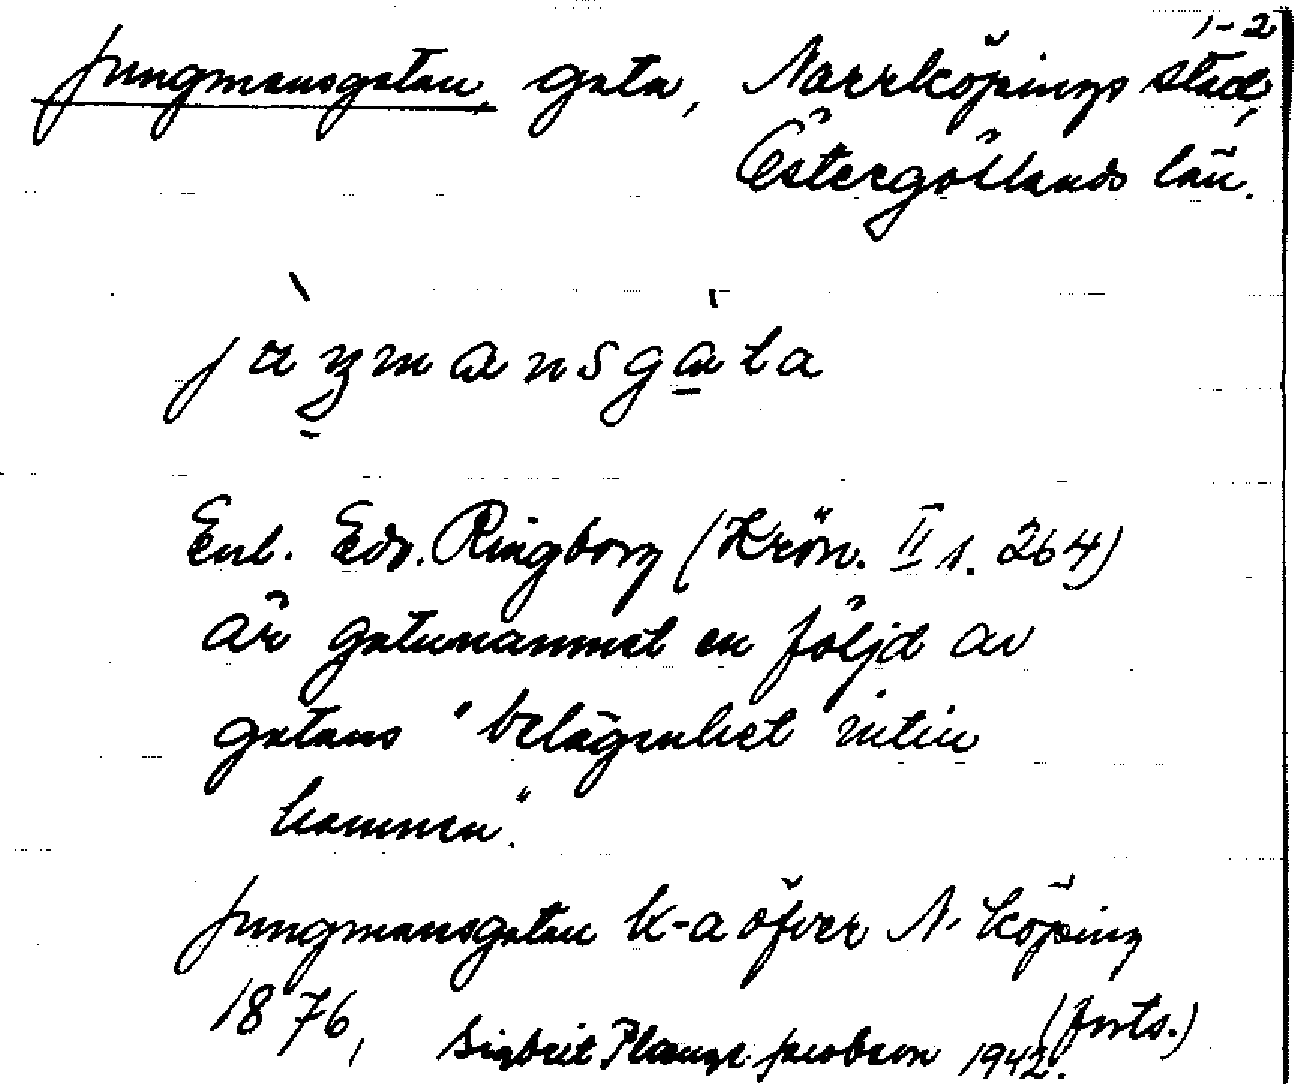 1-2
Jungmansgatan, gata, Norrköpings stad,
Östergötlands län.
Enl. Edv. Ringborg (Krön. II s. 264)
är gatunamnet en följd av
gatans "belägenhet intill
hamnen".
Jungmansgatan k-a öfver N. köping
1876,
(forts.)
Sigbrit Plænge Jacobson 1942.